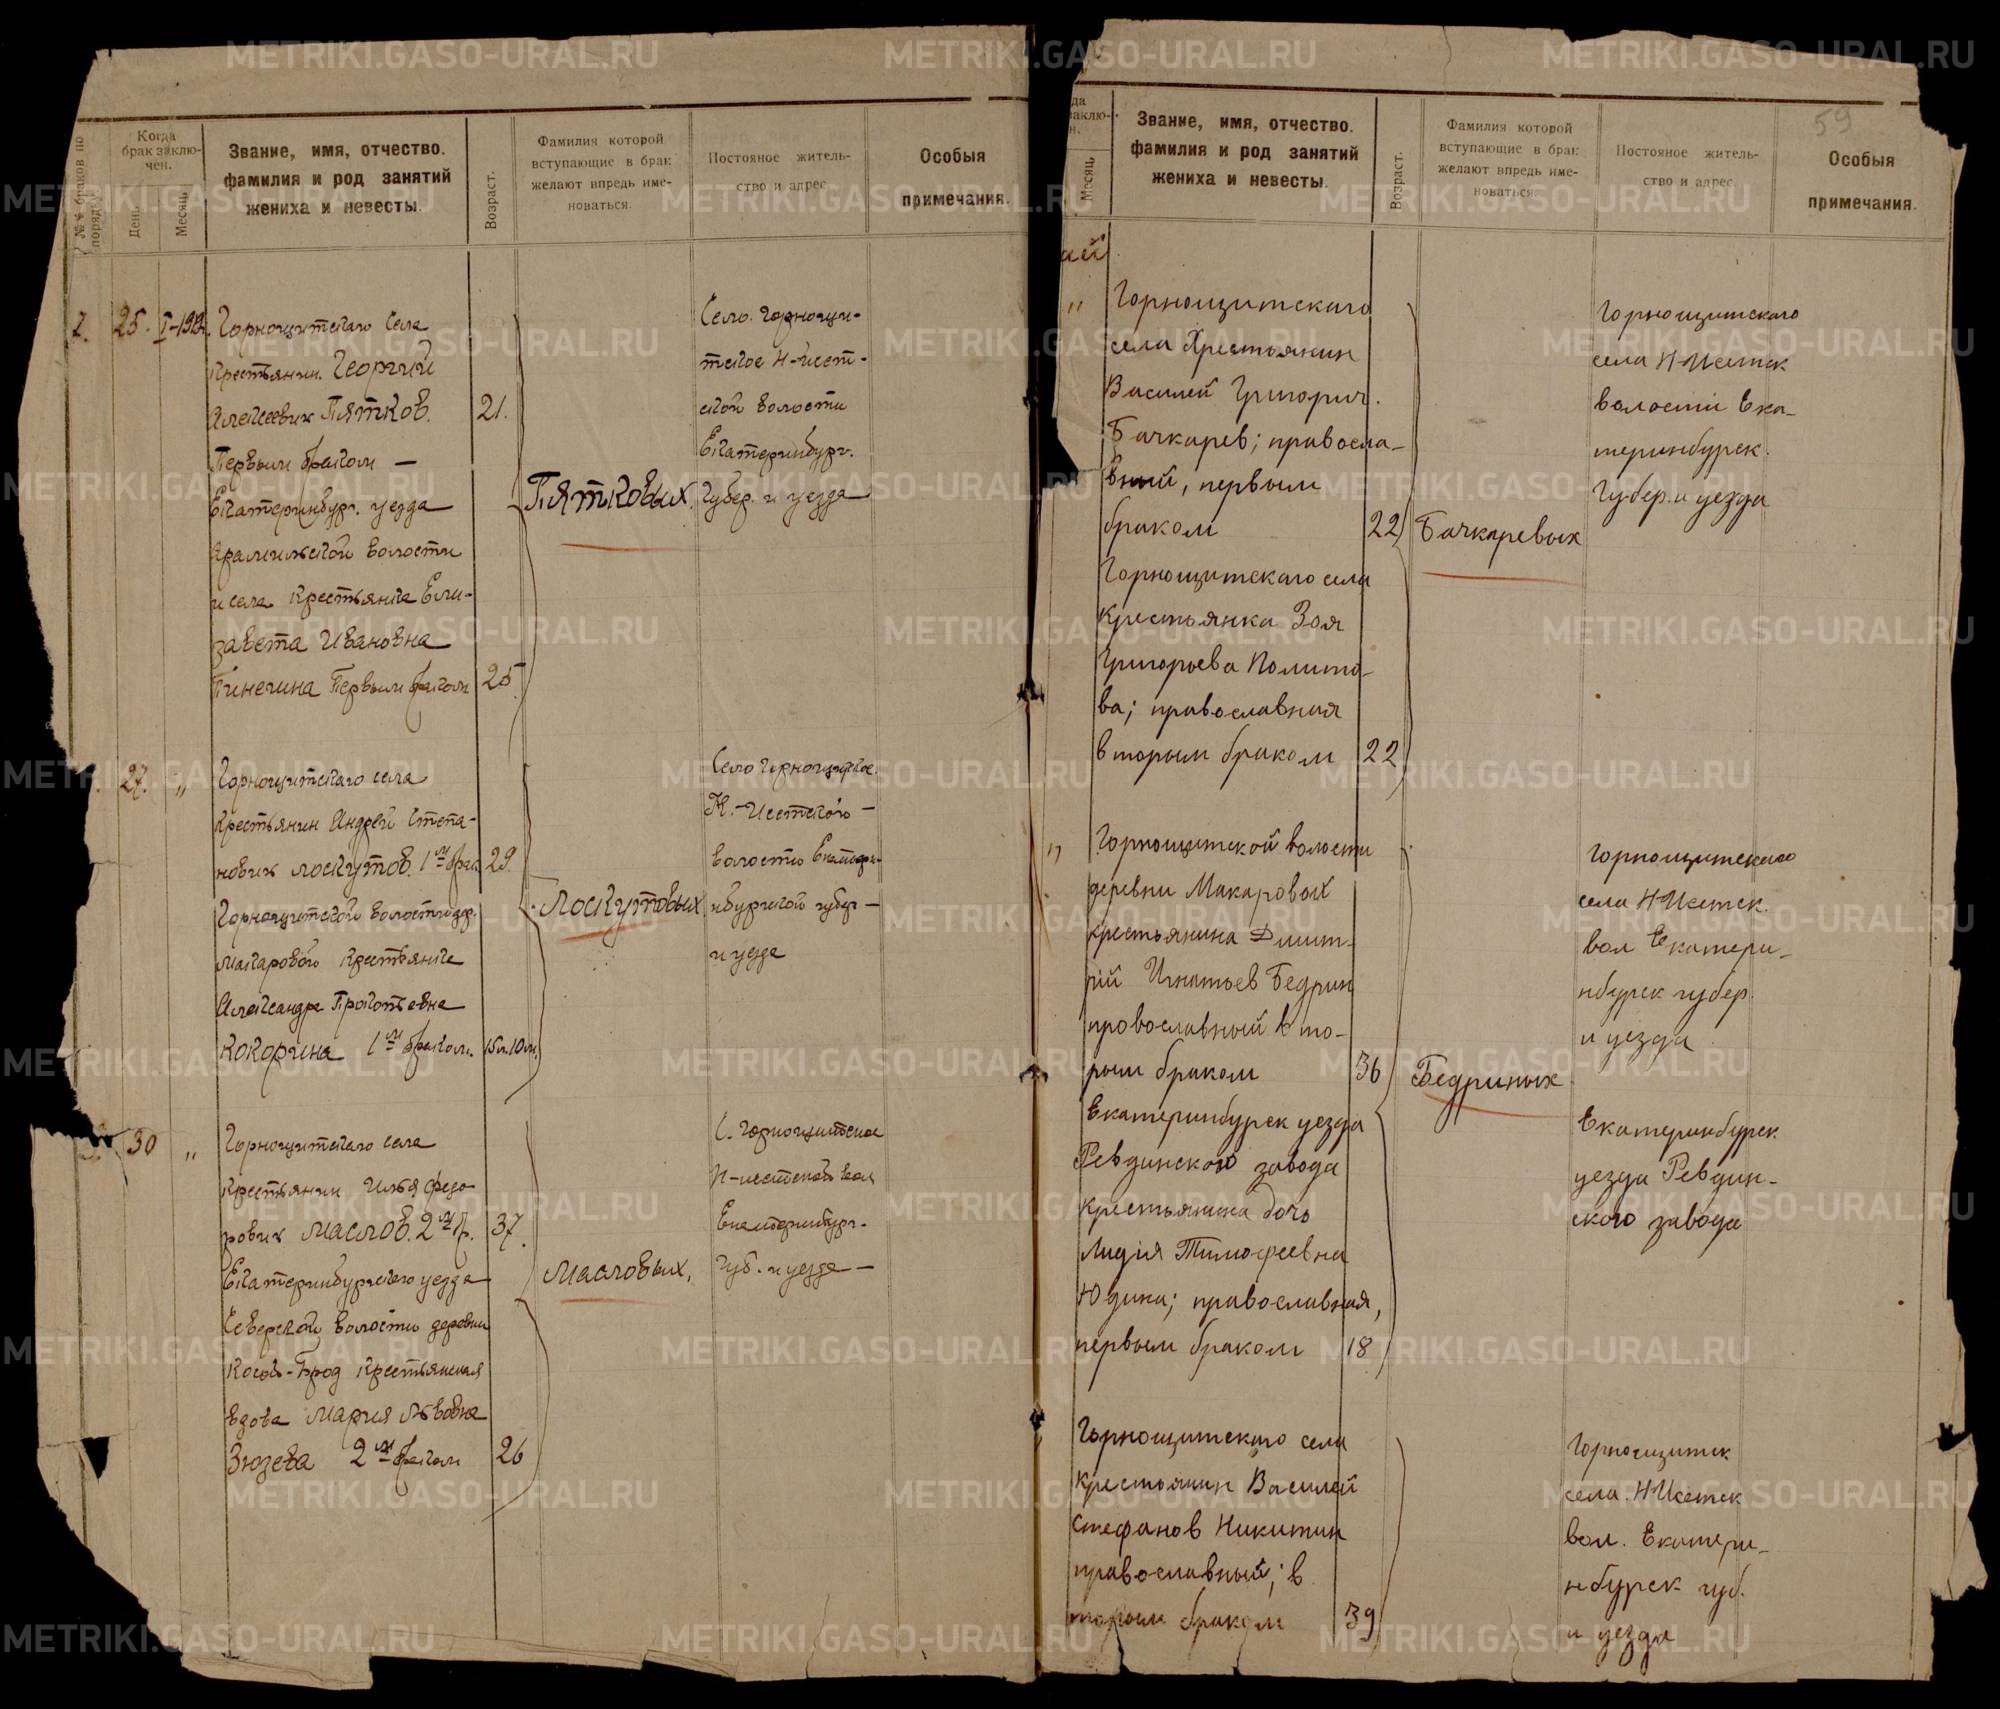 №№ браков по порядку
Когда брак заклю-
чен.
День.
Месяц.
Звание, имя, отчество.
фамилия и род занятий
жениха и невесты.
Возраст.
Фамилия которой
вступающие в брак
желают впредь име-
новаться.
Постояное житель-
ство и адрес
Особыя
примечания.
25.
Горнощитскаго Села
Крестьянин. Георгий
Алексеевич Пятков. 21.
Первым браком —
Екатеринбург. уезда
Арамильской волости
и села Крестьянка Ели-
завета Ивановна
Пинегина Первым браком 25.
Пятковых.
Село. Горнощи-
тское Н-Исет-
ской волости
Екатеринбург.
Губер. и уезда
27. "
Горнощитскаго села
Крестьянин Андрей Степа-
нович Лоскутов. 1м брак 29.
Горнощитской волости дер.
Макаровой Крестьянка
Александра Прокопьевна
Кокорина 1м браком. 15л.10м.
Лоскутовых
Село Горнощитское.
Н.-Исетской —
волости Екатери-
нбургской губер —
и уезда
30 "
Горнощитскаго села
Крестьянин Илья Федо-
рович Маслов. 2м бр. 37.
Екатеринбургскаго уезда
Северской волости деревни
Косой-Брод Крестьянская
вдова Мария Львовна
Зюзева 2м браком 26
Масловых.
С. Горнощитское
Н-исетской вол
Екатеринбург.
Губ. и уезда —
59
Месяц.
Звание, имя, отчество.
фамилия и род занятий
жениха и невесты.
Возраст.
Фамилия которой
вступающие в брак
желают впредь име-
новаться.
Постояное житель-
ство и адрес
Особыя
примечания.
ай
"
Горнощитскаго
села Крестьянин
Василей Григорич.
Бачкарев; правосла-
вный, первым
браком 22
Горнощитскаго села
Крестьянка Зоя
Григорьева Полито-
ва; православная
вторым браком 22
Бачкаревых
Горнощитскаго
села Н-Исетск
волости Ека-
теринбурск.
Губер. и уезда
"
Горнощитской волости
деревни Макаровых
крестьянина Дмит-
рій Игнатьев Бедрин
провославный вто-
рым браком 36
Екатеринбурск уезда
Ревдинского завода
Крестьянина дочь
Лидія Тимофеевна
Юдина; православная,
первым браком 18
Бедриных
Горнощитскаго
села Н Исетск.
вол Екатери-
нбурск губер.
и уезда
Екатеринбурск
уезда Ревдин-
ского завода
Горнощитскаго села
Крестьянин Василей
Стефанов Никитин
православный; в
торым браком 39
Горнощитск
села. Н Исетск
вол. Екатери-
нбурск губ.
и уезда